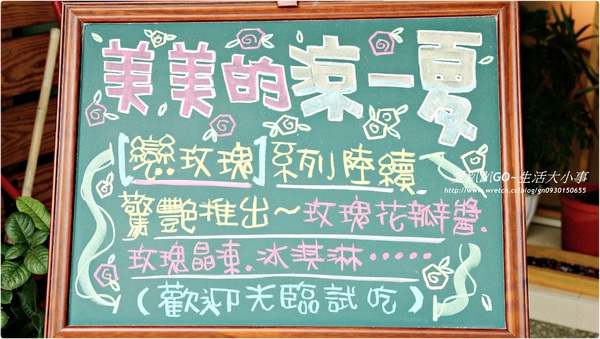 美美的涼一夏
[戀玫瑰]系列陸續
驚艷推出~玫瑰花瓣醬.
玫瑰晶凍.冰淇淋……
(歡迎光臨試吃)
GO~生活大小事
http://www.wretch.cc/blog/gn0930150655